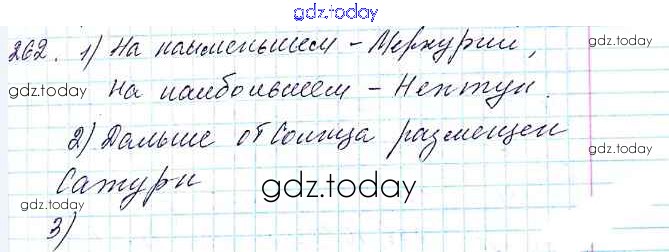 gdz.today
262. 1) На наименьшем - Меркурии,
gdz.today
gdz.today
на наибольшем - Нептун.
2) Дальше от Солнца размещен
gdz.today
Сатурн
gdz.today
gdz.today
3)